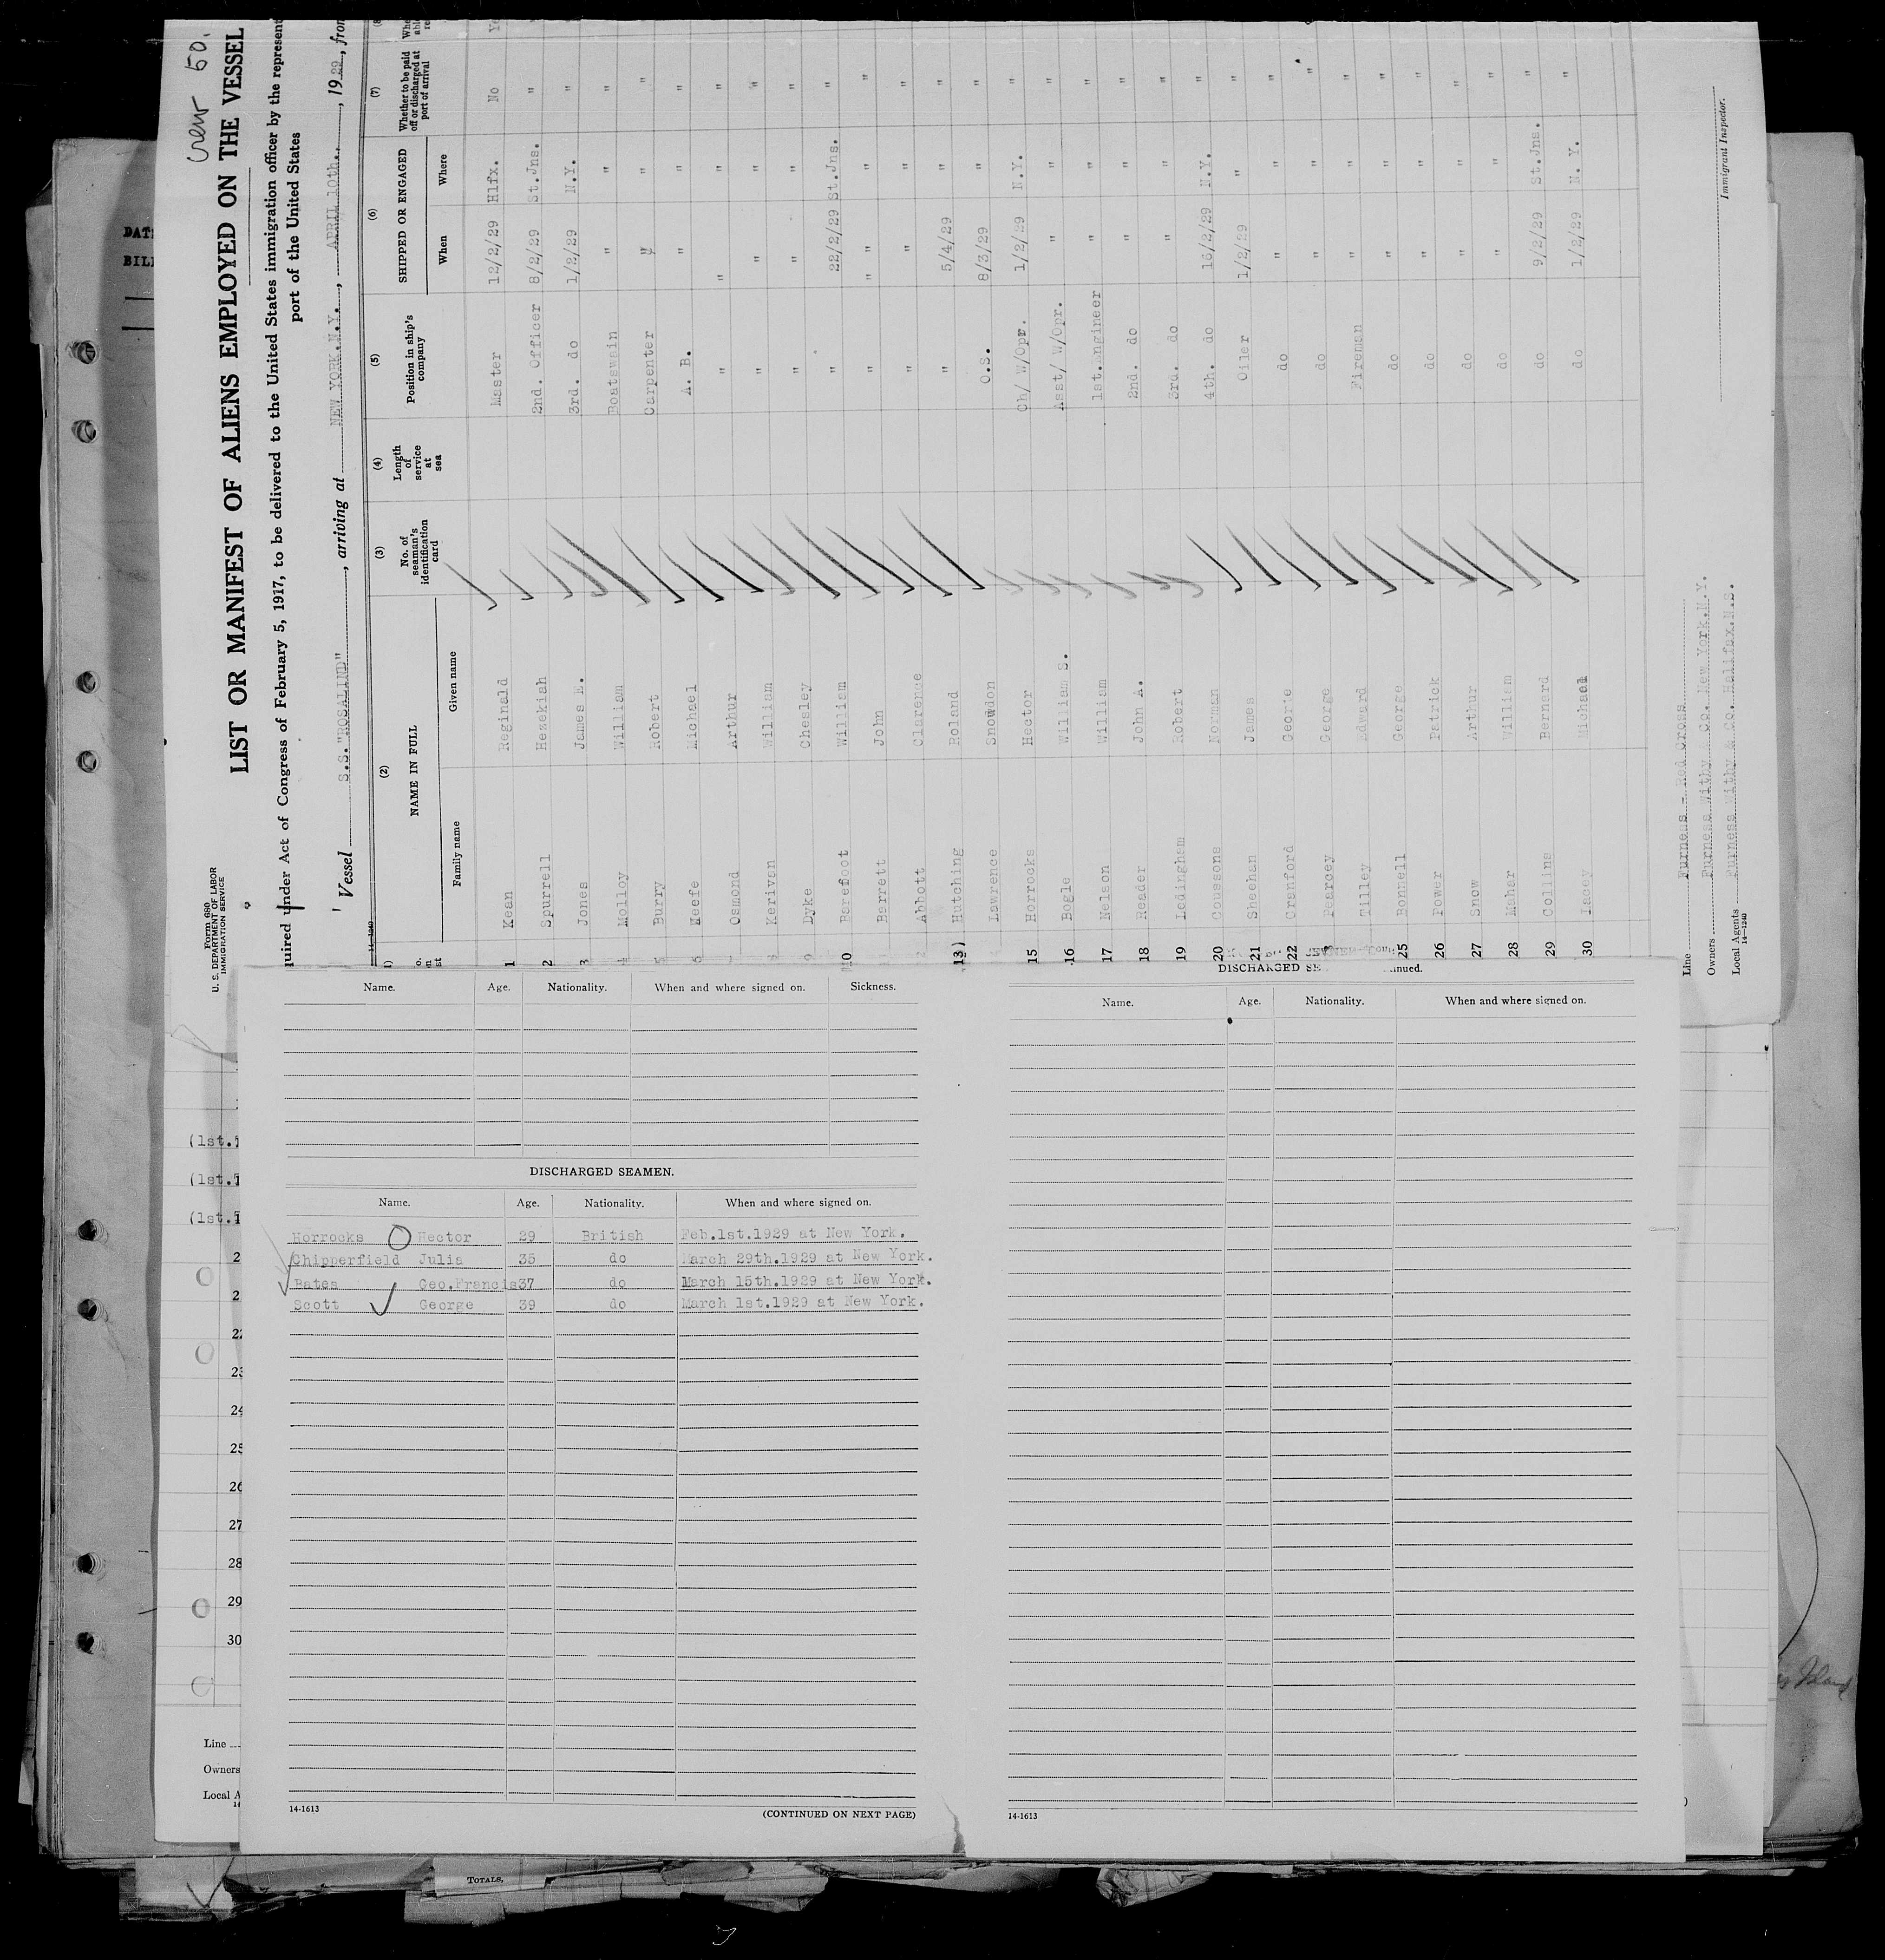 Crew 50.
Form 680
U. S. DEPARTMENT OF LABOR
IMMIGRATION SERVICE
LIST OR MANIFEST OF ALIENS EMPLOYED ON THE VESSEL
quired under Act of Congress of February 5, 1917, to be delivered to the United States immigration officer by the represent
port of the United States
Vessel S.S. "ROSALIND", arriving at NEW YORK.N.Y., APRIL 10th., 1929, from
(2) (3) (4) (5) (6) (7) (8
NAME IN FULL No. of seaman's identification card Length of service at sea Position in ship's company SHIPPED OR ENGAGED Whether to be paid off or discharged at port of arrival
Family name Given name When Where
1 Kean Reginald Master 12/2/29 Hlfx. No Ye
2 Spurrell Hezekiah 2nd. Officer 8/2/29 St.Jns. "
3 Jones James E. 3rd. do 1/2/29 N.Y. "
4 Molloy William Boatswain " " "
5 Burry Robert Carpenter " " "
6 Keefe Michael A. B. " " "
7 Osmond Arthur " " " "
8 Kerivan William " " " "
9 Dyke Chesley " " " "
10 Barefoot William " 22/2/29 St.Jns. "
Barrett John " " " "
Abbott Clarence " " " "
13 Hutching Roland " 5/4/29 " "
Lawrence Snowdon O.S. 8/3/29 " "
15 Horrocks Hector Ch/ W/Opr. 1/2/29 N.Y. "
16 Bogle William S. Asst/ W/Opr. " " "
17 Nelson William 1st. Engineer " " "
18 Reader John A. 2nd. do " " "
19 Ledingham Robert 3rd. do " " "
20 Coussons Norman 4th. do 16/2/29 N.Y. "
21 Sheehan James Oiler 1/2/29 " "
22 Cranford George do " " "
Pearcey George do " " "
Tilley Edward Fireman " " "
25 Bonnell George do " " "
26 Power Patrick do " " "
27 Snow Arthur do " " "
28 Mahar William do " " "
29 Collins Bernard do 9/2/29 St.Jns. "
30 Lacey Michael do 1/2/29 N. Y. "
Line Furness - Red Cross
Owners Furness Withy & Co. New York.N.Y.
Local Agents Furness Withy & Co. Halifax.N.S.
14-1240
Immigrant Inspector.
DATE
BILL
Name. Age. Nationality. When and where signed on. Sickness.
DISCHARGED SEAMEN.
Name. Age. Nationality. When and where signed on.
Horrocks Hector 29 British Feb.1st.1929 at New York.
Chipperfield Julia 35 do March 29th.1929 at New York.
Bates Geo.Francis 37 do March 15th.1929 at New York.
Scott George 39 do March 1st.1929 at New York.
14-1613
(CONTINUED ON NEXT PAGE)
DISCHARGED SE nued.
Name. Age. Nationality. When and where signed on.
14-1613
(1st.
(1st.
(1st.
2
2
22
23
24
25
26
27
28
29
30
Line
Owners
Local A
TOTALS,